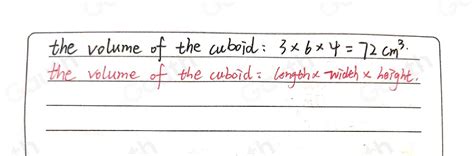 the volume of the cuboid: 3 × 6 × 4 = 72 cm³.
the volume of the cuboid: length × width × height.